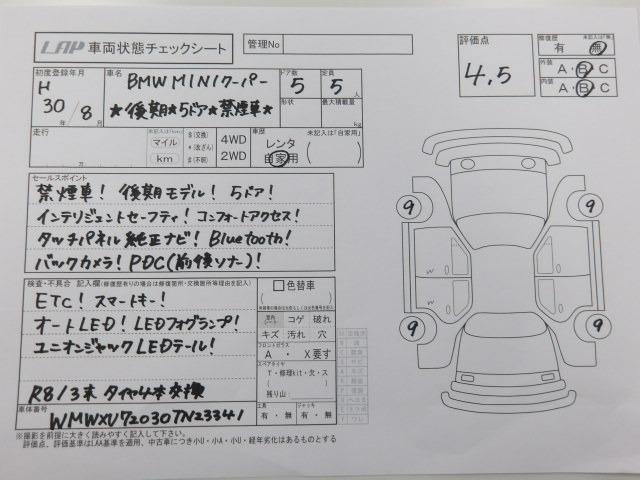 LAP 車両状態チェックシート
管理No
評価点
4.5
修復歴
有・無
外装
A・B・C
内装
A・B・C
初度登録年月
H
30年/8月
車名
BMW MINIクーパー
★後期★5ドア★禁煙車★
ドア数
5
定員
5人
形状
最大積載量
kg
走行
万
マイル
km
$(交換)
*(改ざん)
#(不明)
4WD
2WD
車歴
未記入は「自家用」
レンタ
自家用
セールスポイント
禁煙車! 後期モデル! 5ドア!
インテリジェントセーフティ! コンフォートアクセス!
タッチパネル純正ナビ! Bluetooth!
バックカメラ! PDC(前後ソナー)!
検査・不具合 記入欄(修復歴有りの場合は修復箇所・交換箇所等理由を記入)
ETC! スマートキー!
オートLED! LEDフォグランプ!
ユニオンジャックLEDテール!
R8/3末 タイヤ4本交換
色替車
コゲ 破れ
キズ 汚れ 穴
フロントガラス
A ・ X要す
スペアタイヤ
T・修理kit・欠・ス
残り山:
工具
有・無
ジャッキ
有・無
車体番号
WMWXU72030TN23341
9
9
9
9
w
w
※撮影を前提に大きく読みやすく記入して下さい。
評価点、評価基準はLAA基準を適用、中古車につき小U・小A・小U・経年劣化はあるものとする